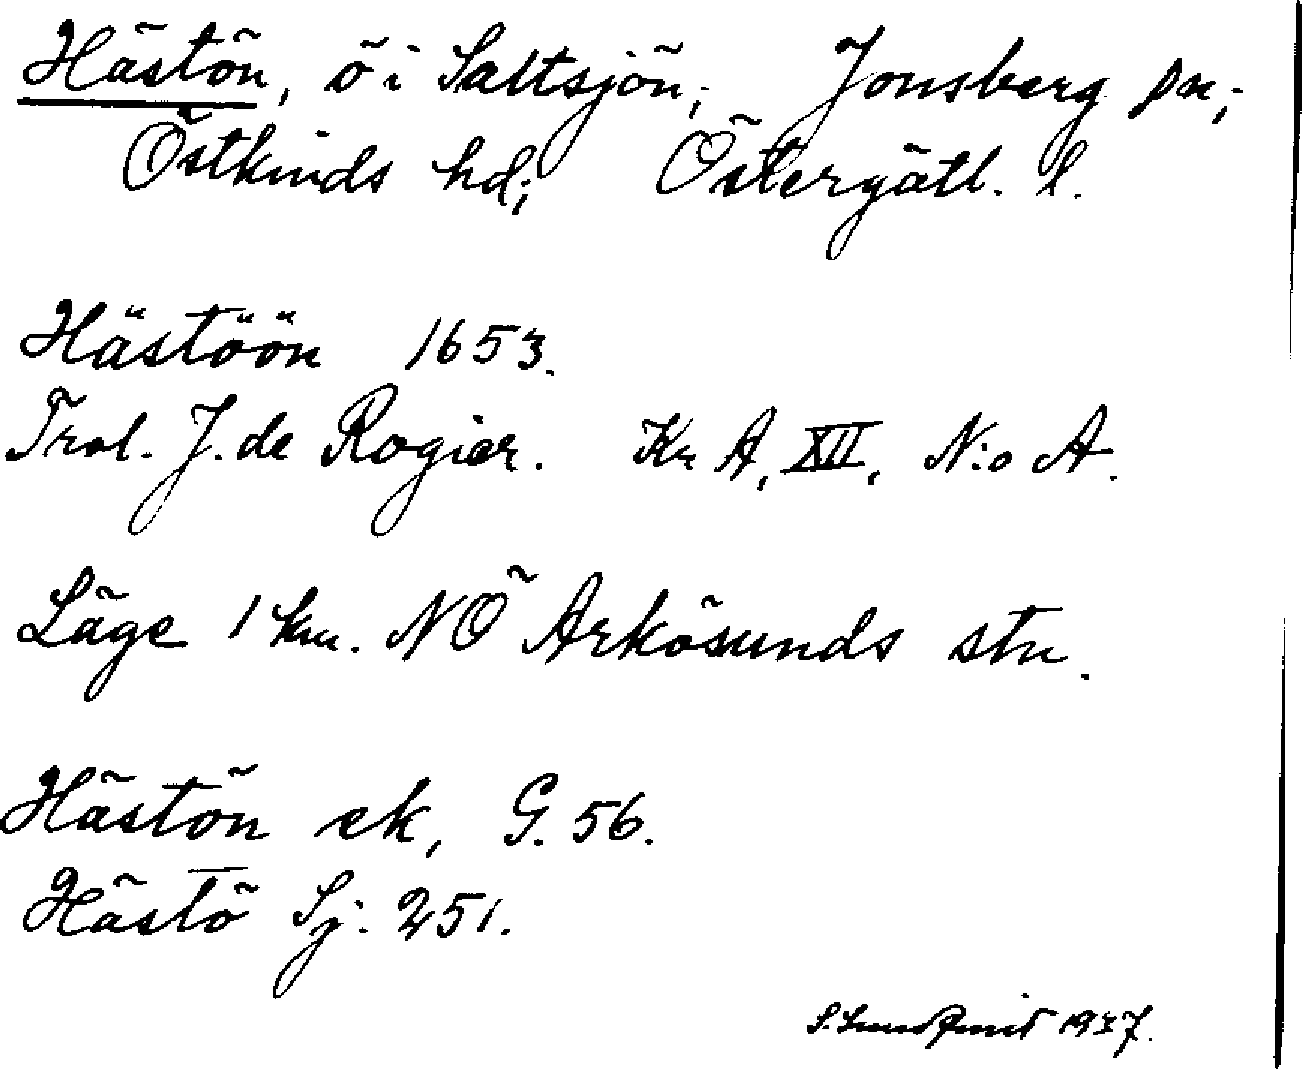 Hästön, ö i Saltsjön; Jonsberg sn;
Östkinds hd; Östergötl. l.
Hästöön 1653.
Trol. J. de Rogier. Kr A, XII, N:o A.
Läge 1 km. NÖ Arkösunds stn.
Hästön ek, G. 56.
Hästö Sj. 251.
S. Lundqvist 1937.